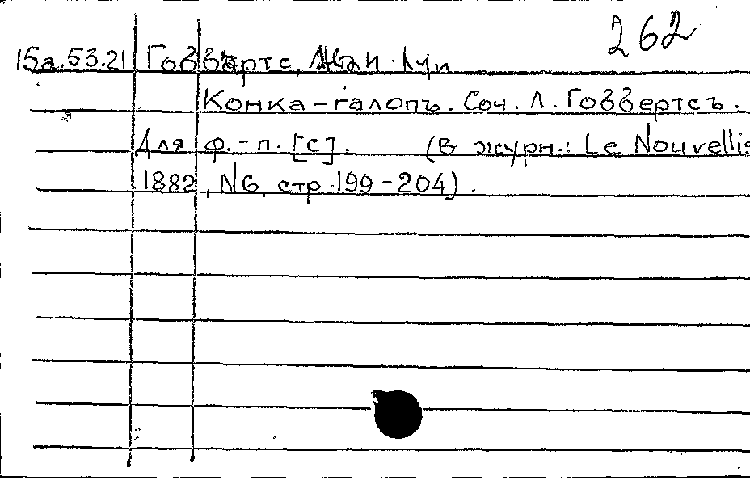 262
15а.53.21 Говвертс, Жан Луи
Конка-галопъ. Соч. Л. Говвертсъ.
Для ф.-п. [C]. (В журн.: Le Nouvellis
1882, N6, стр. 199-204).